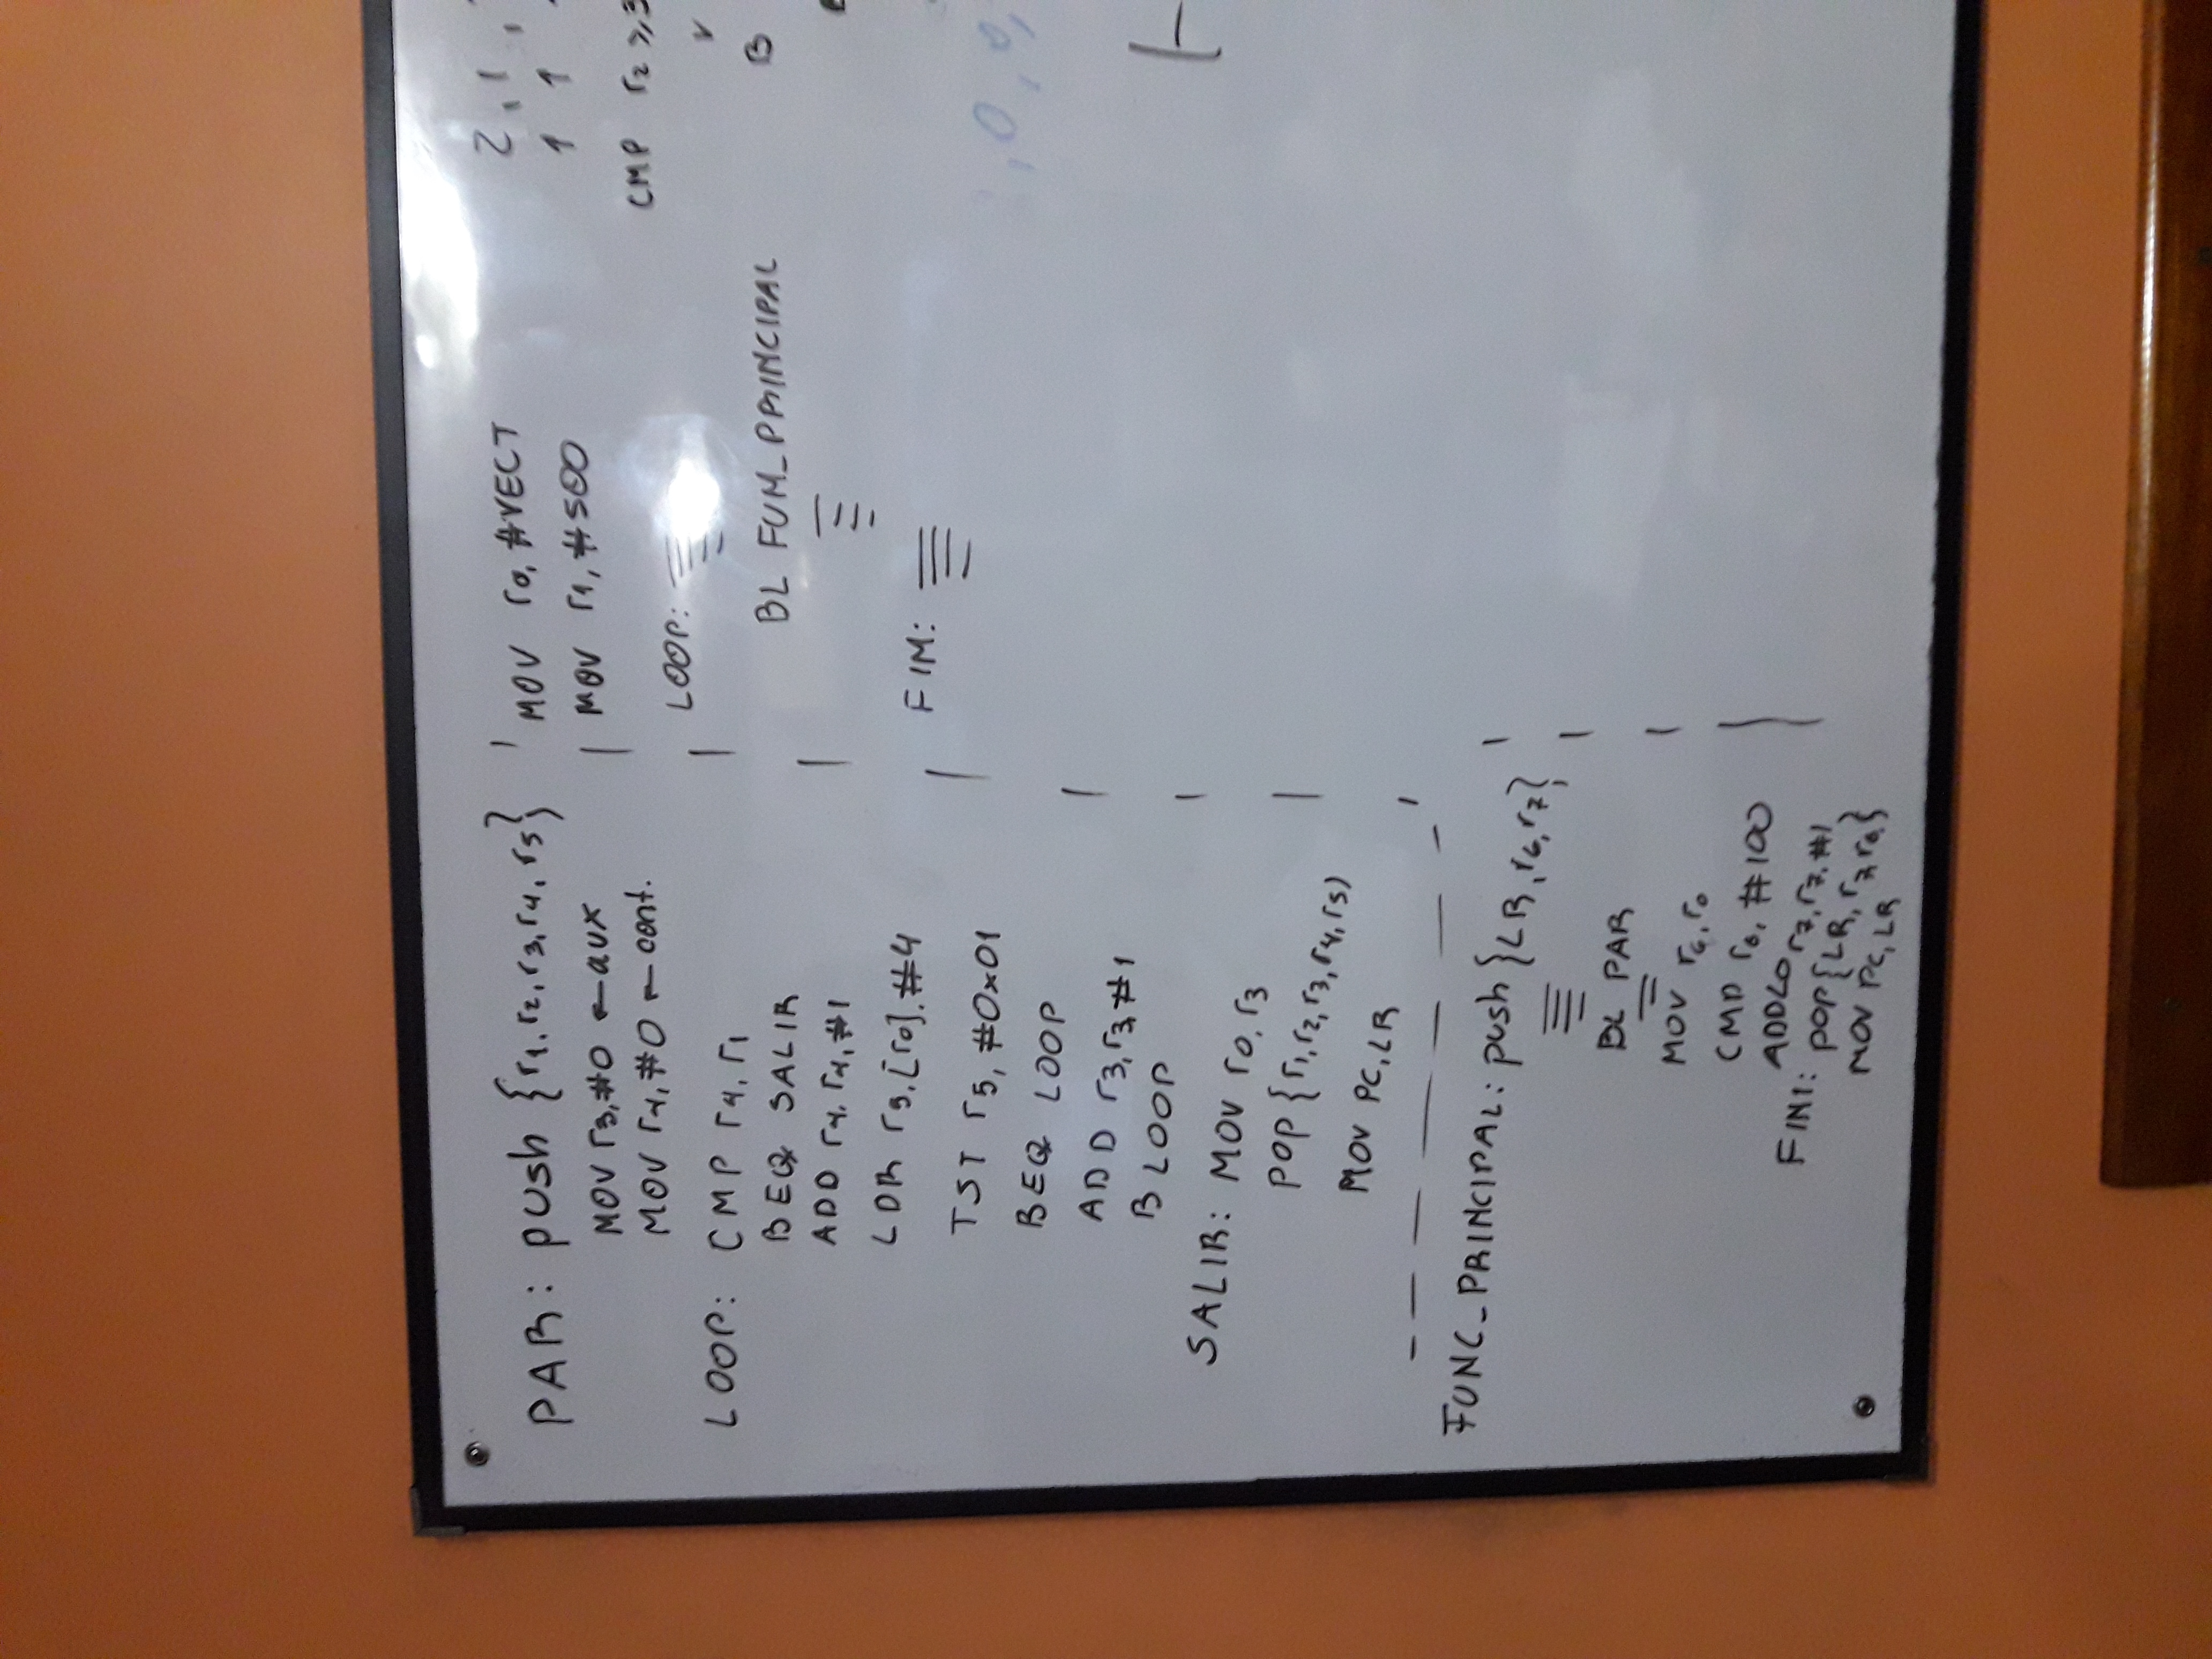 PAR: push {r1, r2, r3, r4, r5}
MOV r3, #0 ← aux
MOV r4, #0 ← cont.
LOOP: CMP r4, r1
BEQ SALIR
ADD r4, r4, #1
LDR r5, [r0], #4
TST r5, #0x01
BEQ LOOP
ADD r3, r3, #1
B LOOP
SALIR: MOV r0, r3
POP {r1, r2, r3, r4, r5)
MOV PC, LR
FUNC_PRINCIPAL: push {LR, r6, r7}
BL PAR
MOV r6, r0
CMP r6, #100
ADDLO r7, r7, #1
FIN1: POP {LR, r7, r6}
MOV PC, LR
MOV r0, #VECT
MOV r1, #500
LOOP:
BL FUM_PRINCIPAL
FIM:
2, 1,
1 1
CMP r2 ≥ 3
B
, 0, 0,